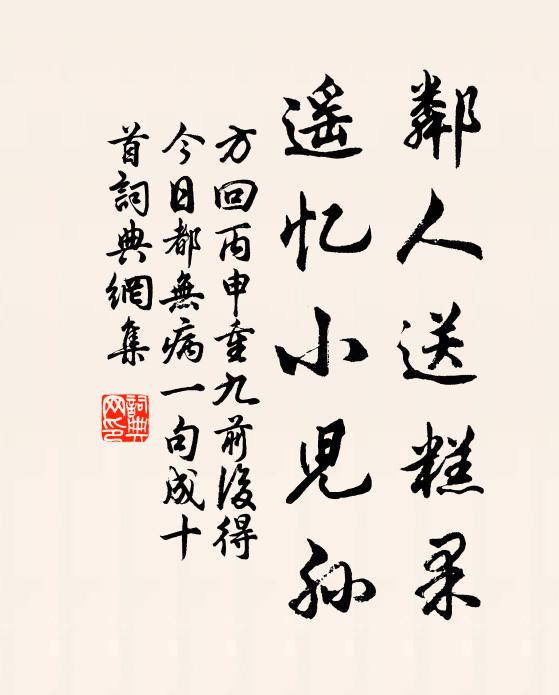 鄰人送糕果
遥忆小兒孙
方回丙申重九前後得
今日都無病一句成十
首詞典網集
詞典
网印